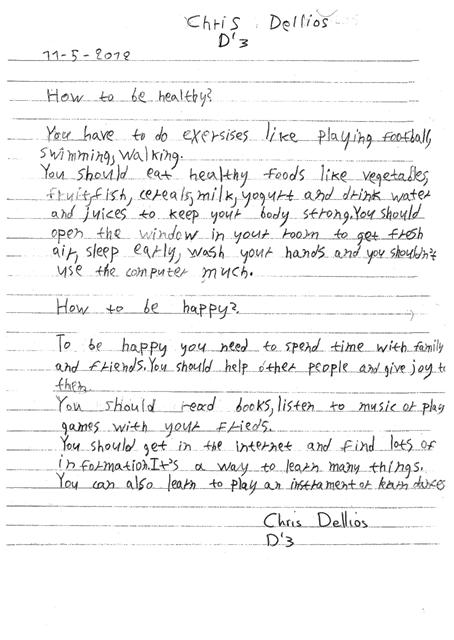 Chris Dellios
D'3
11-5-2018
How to be healthy?
You have to do exersises like playing football,
swimming, walking.
You should eat healthy foods like vegetables,
fruit, fish, cereals, milk, yogurt and drink water
and juices to keep your body strong. You should
open the window in your room to get fresh
air, sleep early, wash your hands and you shouldn't
use the computer much.
How to be happy?
To be happy you need to spend time with family
and friends. You should help other people and give joy to
them.
You should read books, listen to music or play
games with your frieds.
You should get in the internet and find lots of
information. It's a way to learn many things.
You can also learn to play an instrament or learn dances
Chris Dellios
D'3